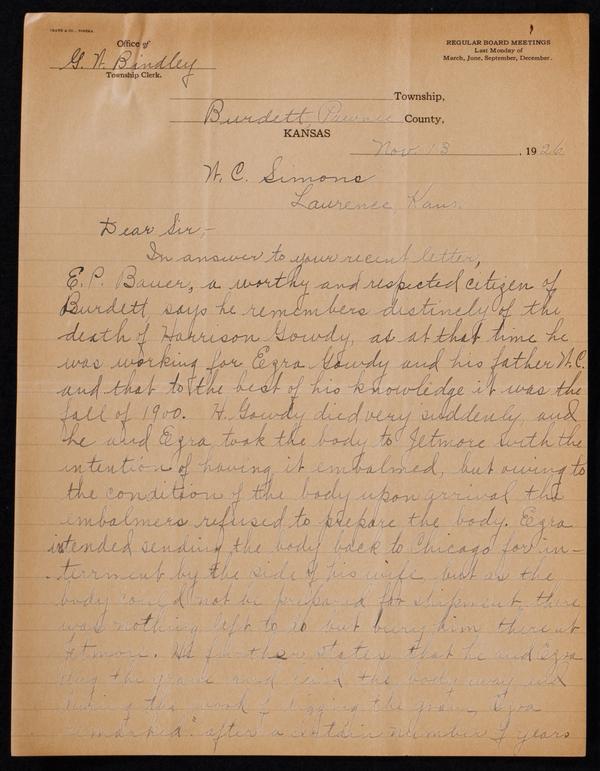 CRANE & CO., TOPEKA
Office of
G. W. Bindley
Township Clerk.
REGULAR BOARD MEETINGS
Last Monday of
March, June, September, December.
Township,
Burdett, Pawnee County,
KANSAS
Nov. 13, 1926
W. C. Simons
Laurence, Kans.
Dear Sir,-
In answer to your recent letter,
E. P. Bauer, a worthy and respected citizen of
Burdett, says he remembers distinctly of the
death of Harrison Gowdy, as at that time he
was working for Ezra Gowdy and his father W.C.
and that to the best of his knowledge it was the
fall of 1900. H. Gowdy died very suddenly and
he and Ezra took the body to Jetmore with the
intention of having it embalmed, but owing to
the condition of the body upon arrival the
embalmers refused to prepare the body. Ezra
intended sending the body back to Chicago for in-
terrment by the side of his wife, but as the
body could not be prepared for shipment, there
was nothing left to do but bury him there at
Jetmore. He further states that he and Ezra
dug the grave and the body away and
during the work of digging the grave, Ezra
remarked "after a certain number of years